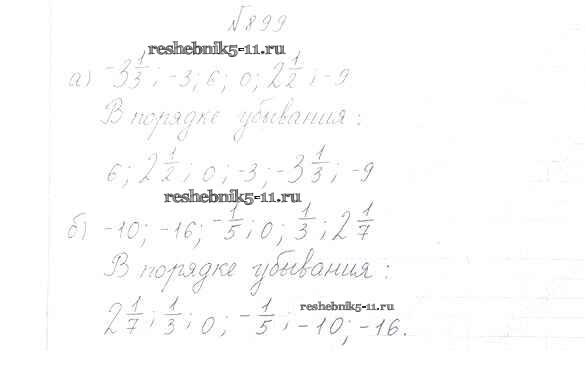 №899
reshebnik5-11.ru
а) -3 1/3; -3; 6; 0; 2 1/2; -9
В порядке убывания:
6; 2 1/2; 0; -3; -3 1/3; -9
reshebnik5-11.ru
б) -10; -16; -1/5; 0; 1/3; 2 1/7
В порядке убывания:
2 1/7; 1/3; 0; -1/5; -10; -16.
reshebnik5-11.ru